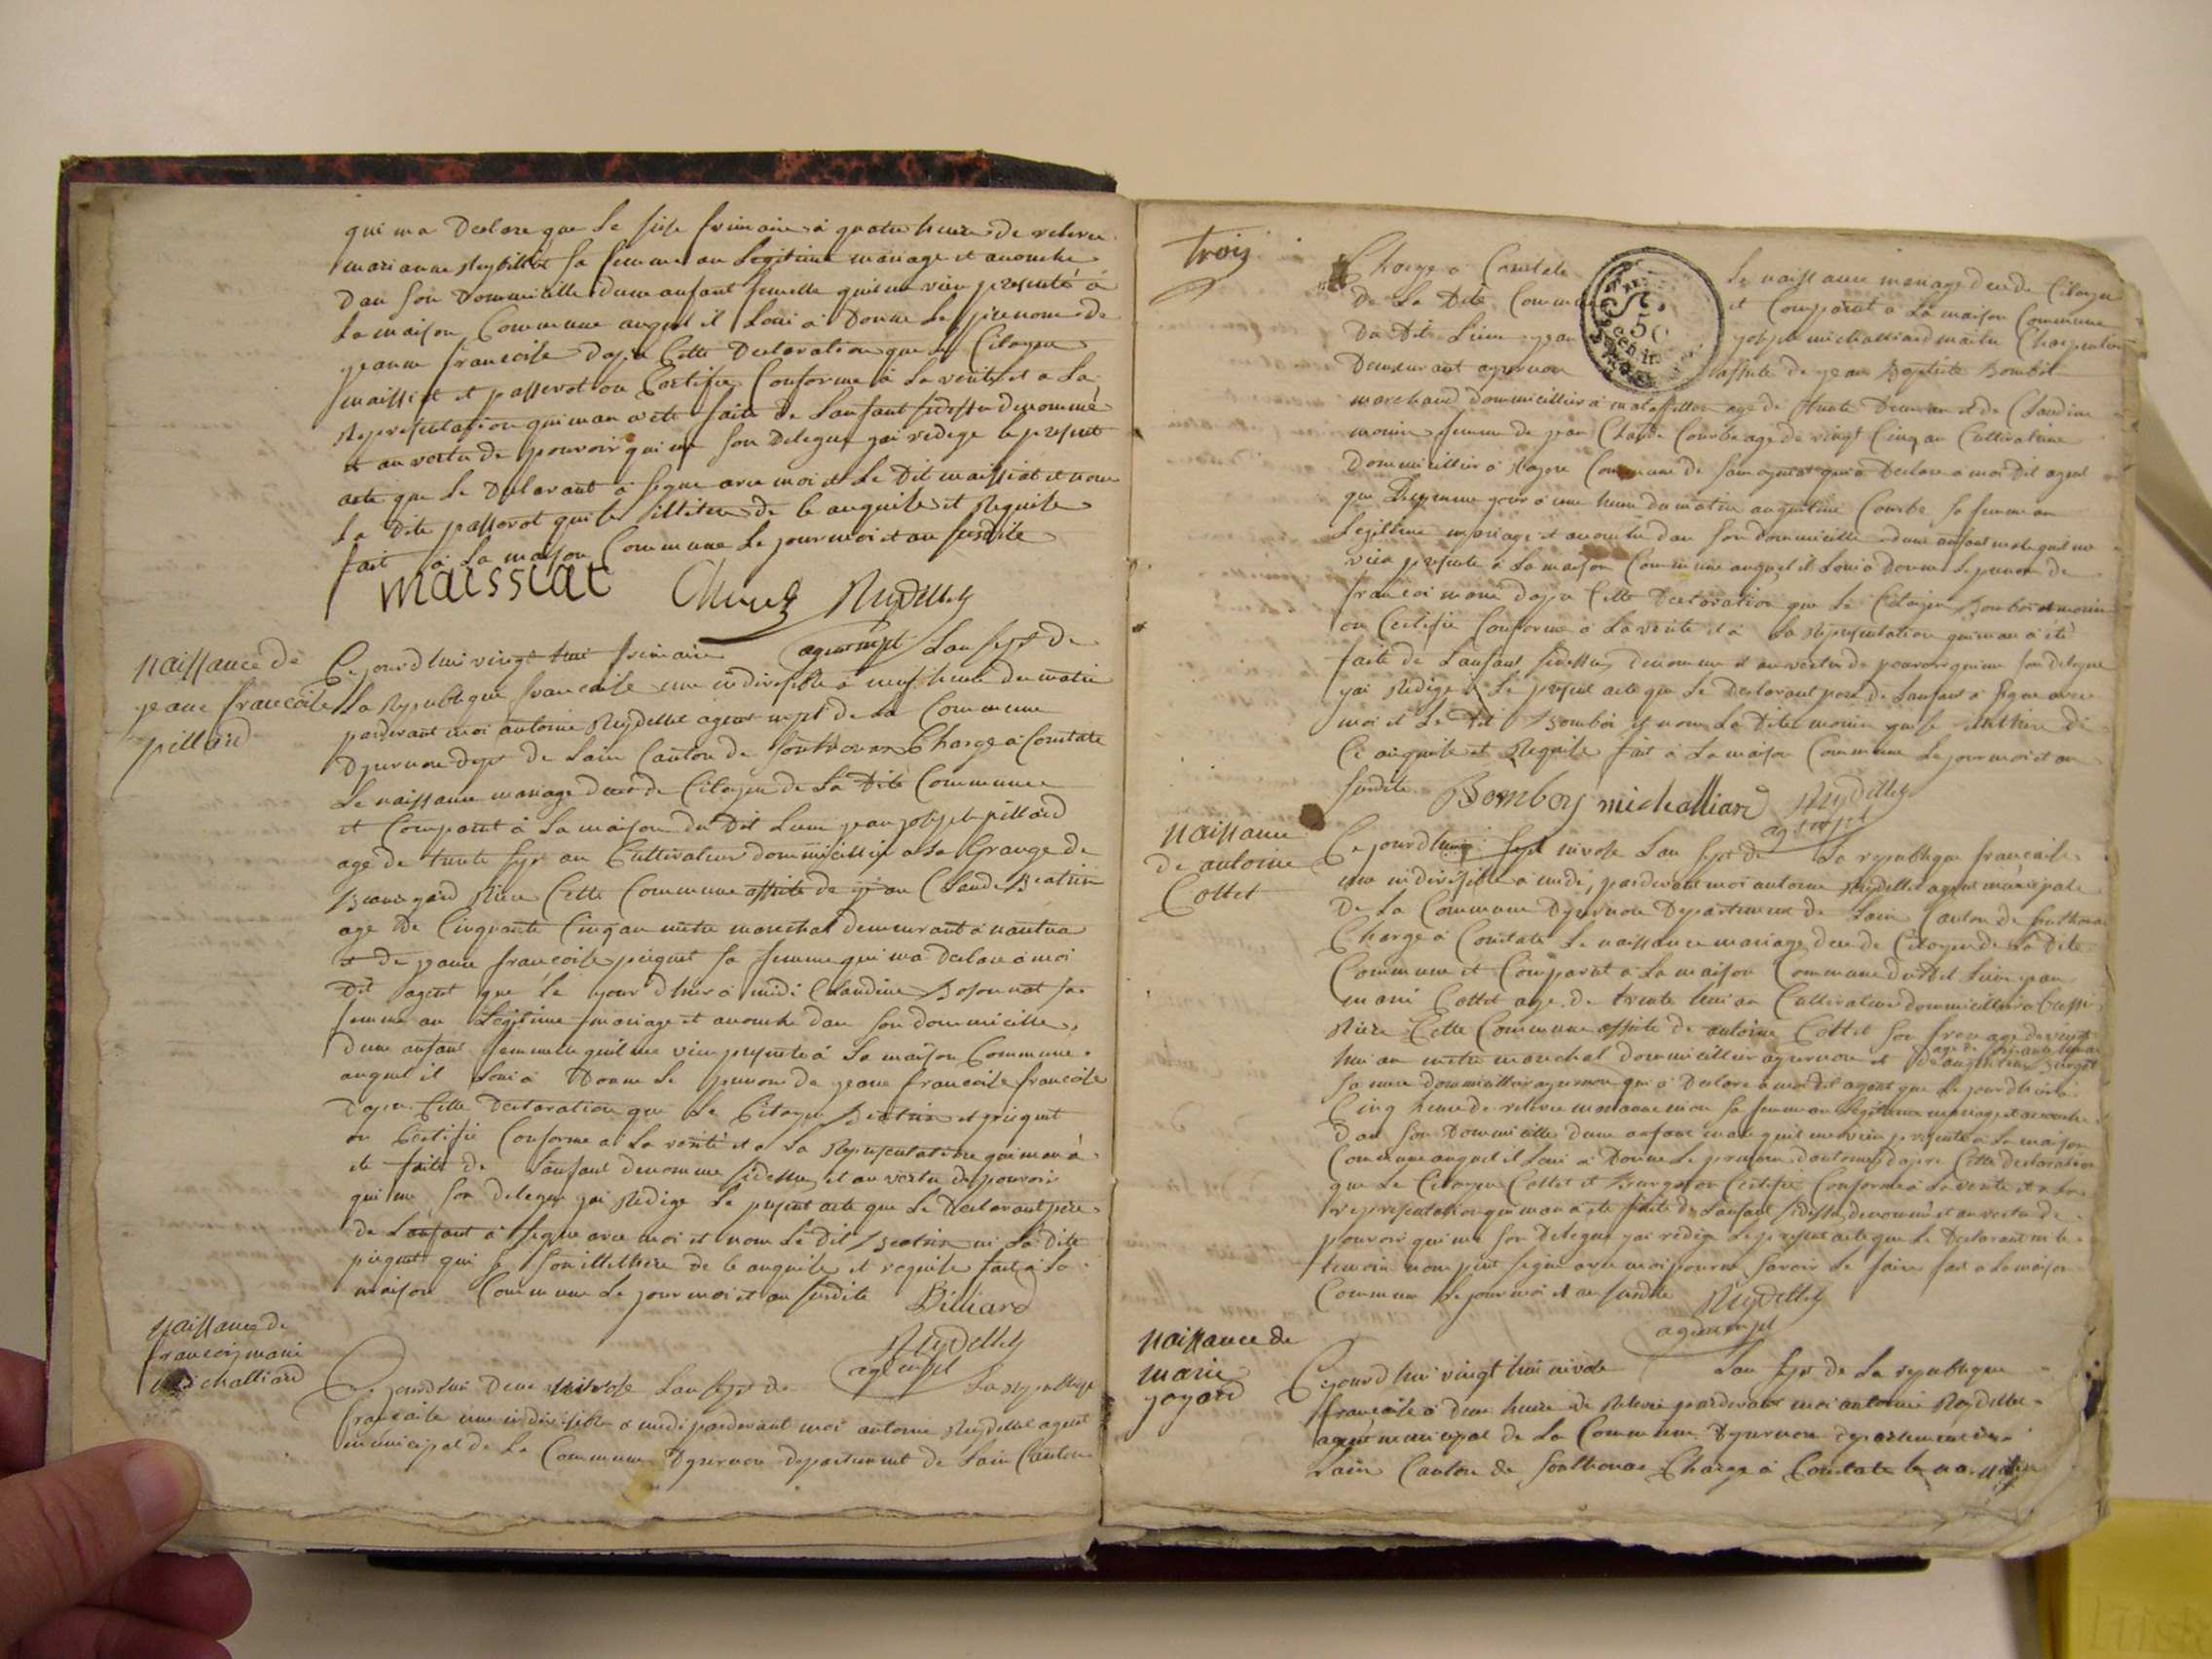 qui ma Declare que Le sise frimaire à quatre heure de releve
marianne Reydillet sa femme an Legitime mariage et anouche
dan son Dommicille dune anfant femelle quil me vien presenté à
La maison Commune auquel il Loui à Donne Le prenom de
jeanne francoise dapre Cette Declaration que Le Citoyen
maissiat et passerot on Certifie Conforme à La verite et a La
Representation qui man a ete faite de Lanfant sidessu denommé
et an vertu de pouvoir qui me son Delegue jai redige le present
acte que Le Declarant à signe avec moi et Le Dit maissiat et non
La Dite passerot qui
fait à La maison Commune Le jour moi et an susdite
maissiat Reydellet
agent mpl
Naissance de
jeane francoise
pillard
Cejourdhui vingt hui frimaire Lan sept de
La Republique francaise une indivisible à neuf heure du matin
pardevant moi antoine Reydellet agent mpl de La Commune
Dgurnon dept de Lain Canton de Sonthonax Charge à Constate
Le naissance mariage deces de Citoyen de La Dite Commune
et Comparut à La maison du Dit Lieu jean joseph pillard
age de trente sept an Cultivateur dommicillie a La Grange de
Beauregard Riere Cette Commune assiste de jean Claude Beatrix
age de Cinquante Cinq an metre marechal demeurant à nantua
et de jeane francoise piequet sa femme qui ma declare à moi
Dit agent que le jour dhier à midi Claudine sa
femme an Legitime mariage et anouche dan son dommicille
dune anfant femmelle quil me vien presente à La maison Commune
auquel il Loui à Donne Le prenom de jeane francoise francoise
dapre Cette Declaration que Le Citoyen Beatrix et piequet
on Certifie Conforme a La verité et a La Representation qui man à
ete faite de Lanfant denomme sidessu et an vertu de pouvoir
qui me son delegue jai Redige Le present acte que Le Declarant pere
de Lanfant à signe avec moi et non Le Dit Beatrix ni La Dite
piequet qui se son illethere de le anquise et requise fait à La
maison Commune Le jour moi et an susdite Billiard
Reydellet
agent mpl
Naissance de
francois marie
michalliard
Cejourdhui Deux nivose Lan sept de La republique
francaise une indivisible à midi pardevant moi antoine Reydellet agent
municipal de La Commune Dgurnon departement de Lain Canton
trois
Charge à Constate Le naissance mariage deces de Citoyen
De La Dite Commune et Comparut à La maison Commune
Du Dit Lieu jean joseph michalliard maitre Charpentier
Demeurant agurnon assiste de jean Baptiste Bomboi
marchand dommicillier à matafellon age de trente Deux an et de Claudine
monin femme de jean Claude Courbe age de vingt Cinq an Cultivatrice
Dommicillier à Commune de qui à Declare à moi Dit agent
que jour à une heure du matin augustine Courbe sa femme an
Legitime mariage et anouche dan son dommicille dune anfant male quil me
vien presente à La maison Commune auquel il Loui à Donne Le prenom de
francoi marie dapre Cette Declaration que Le Citoyen Bomboi et monin
on Certifie Conforme à La verite et à La Representation qui man à été
faite de Lanfant sidessu denomme et an vertu de pouvoir qui me son delegue
jai Redige Le present acte que Le Declarant pere de Lanfant à signe avec
moi et Le Dit Bomboi et non La Dite monin qui se illethere de
Ce anquise et Requise fait à La maison Commune Le jour moi et an
susdite Bomboy michalliard Reydellet
ag mpl
Naissance
de antoine
Cottet
Cejourdhui sept nivose Lan sept de La republique francaise
une indivisible à midi, pardevant moi antoine Reydellet agent municipale
De La Commune Dgurnon Departement de Lain Canton de Sonthonax
Charge à Constate Le naissance mariage deces de Citoyen de La Dite
Commune et Comparut à La maison Commune du Dit Lieu jean
marie Cottet age de trente hui an Cultivateur dommicillier a
Riere Cette Commune assiste de antoine Cottet son frere age de vingt
hui an metre marechal dommicillier agurnon et de
sa mere dommicillier agurnon qui à Declare à moi dit agent que Le jour dhier à
Cinq heure de relevee marianne sa femme an Legitime mariage et anouche
dan son Dommicille dune anfant male quil me vien presente à La maison
Commune auquel il Loui à Donne Le prenom dantoine dapre Cette declaration
que Le Citoyen Cottet et on Certifie Conforme à La verite et a La
representation qui man à ete faite de Lanfant sidessu denomme et an vertu de
pouvoir qui me son Delegue jai redige Le present acte que Le Declarant ni le
temoin non peut signe avec moi pour ne Savoir Le faire fait a La maison
Commune Le jour moi et an susdite Reydellet
agent mpl
Naissance de
marie
goyard
Cejourdhui vingt hui nivose Lan sept de La republique
francaise à Deux heure de Relevée pardevant moi antoine Reydellet
agent municipal de La Commune Dgurnon departement de
Lain Canton de Sonthonax Charge à Constate